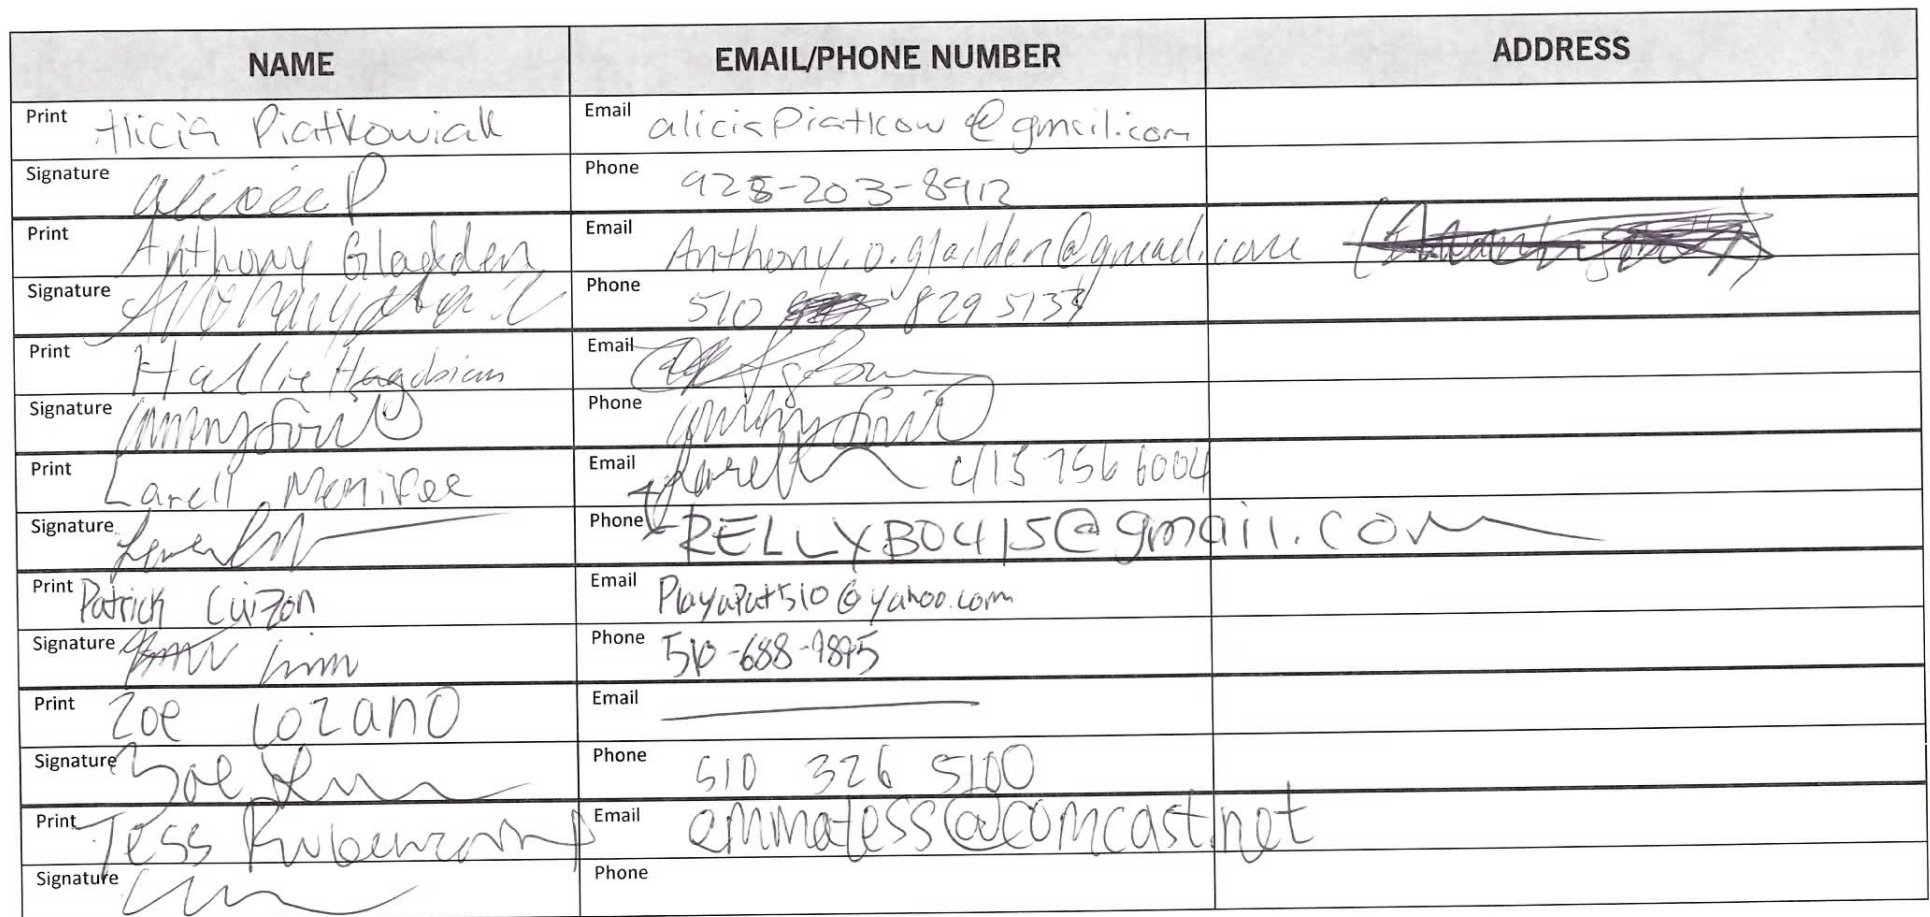 NAME EMAIL/PHONE NUMBER ADDRESS
Print Alicia Piatkowiak Email aliciapiatkow@gmail.com
Signature Alicia P Phone 928-203-8912
Print Anthony Gladden Email Anthony.o.gladden@gmail.com
Signature Phone 510 829 5133
Print Hallie Hagobian Email
Signature Phone
Print Larell Menifee Email Larell 415 756 6004
Signature Phone RELLYB0415@gmail.com
Print Patrick Cuizon Email PlayaPat510@yahoo.com
Signature Phone 510-688-9895
Print Zoe Lozano Email
Signature Zoe Phone 510 326 5100
Print Tess Email emmatess@comcast.net
Signature Phone